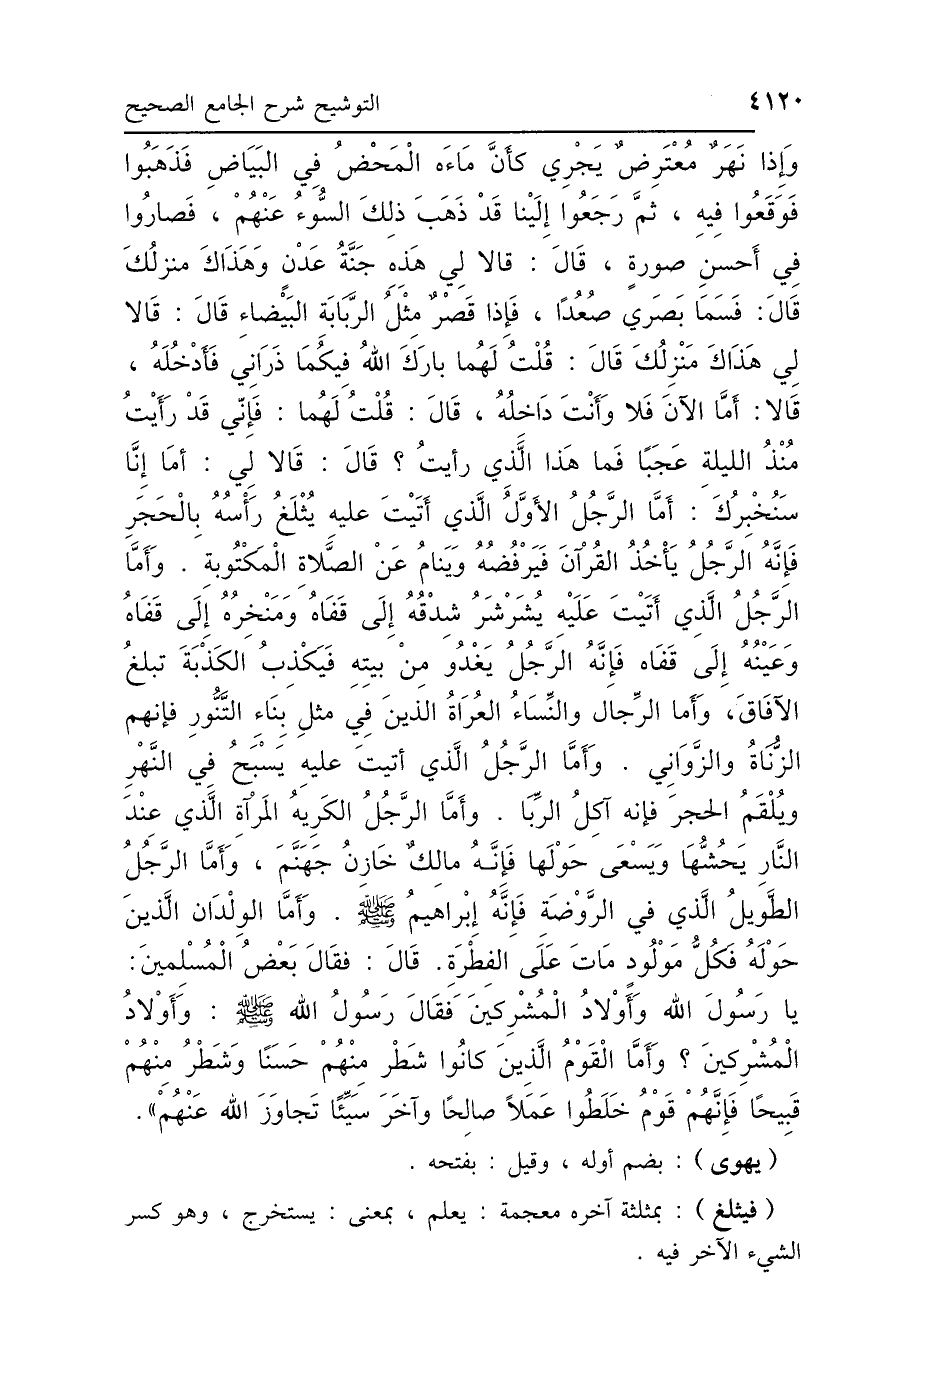 ٤١٢٠ التوشيح شرح الجامع الصحيح
وَإِذا نَهَرٌ مُعْتَرِضٌ يَجْرِي كأَنَّ مَاءَه الْمَحْضُ فِي البَيَاضِ فَذَهَبُوا
فَوَقَعُوا فيه ، ثمَّ رَجَعُوا إِلَيْنا قَدْ ذَهَبَ ذلكَ السُّوءُ عَنْهُمْ ، فَصارُوا
في أَحسنِ صورةٍ ، قَالَ : قالا لي هَذِهِ جَنَّةُ عَدْنٍ وَهَذَاكَ منزلُكَ
قَالَ: فَسَمَا بَصَرِي صعُدًا ، فَإِذا قَصْرٌ مثْلُ الرَّبَابَة البَيْضاء قَالَ : قَالا
لي هَذَاكَ مَنْزِلُكَ قَالَ : قُلْتُ لَهُما بارَكَ اللهُ فيكُمَا ذَرَاني فَأَدْخُلَهُ ،
قَالا: أَمَّا الآنَ فَلا وَأَنْتَ دَاخلُهُ ، قَالَ : قُلْتُ لَهُما : فَإِنّي قَدْ رَأَيْتُ
مُنْذُ الليلة عَجَبًا فَما هَذا الَّذي رأيتُ ؟ قَالَ : قَالا لي : أمَا إِنَّا
سَنُخْبِرُكَ : أَمَّا الرَّجُلُ الأوَّلُ الَّذي أَتَيْتَ عليه يُثْلَغُ رَأْسُهُ بالْحَجَرِ
فَإِنَّهُ الرَّجُلُ يَأْخُذُ القُرْآنَ فَيَرْفضُهُ وَيَنامُ عَنْ الصَّلاة الْمَكْتُوبة . وَأَمَّا
الرَّجُلُ الَّذي أَتَيْتَ عَلَيْه يُشَرْشَرُ شدْقُهُ إِلَى قَفَاهُ وَمَنْخِرُهُ إِلَى قَفَاهُ
وَعَيْنُهُ إِلَى قَفَاه فَإِنَّهُ الرَّجُلُ يَغْدُو منْ بيته فَيَكْذبُ الكَذْبَةَ تبلغُ
الآفَاقَ، وَأَما الرِّجال والنِّسَاءُ العُرَاةُ الذينَ في مثل بِنَاء التَّنُّور فإنهم
الزُّنَاةُ والزَّوَاني . وَأَمَّا الرَّجُلُ الَّذي أتيتَ عليه يَسْبَحُ في النَّهْرِ
ويُلْقَمُ الحجرَ فإنه آكلُ الرِّبَا . وأمَّا الرَّجُلُ الكَرِيهُ المَرْآة الَّذي عنْدَ
النَّار يَحُشُّهَا وَيَسْعَى حَوْلَها فَإِنَّهُ مالكٌ خَازنُ جَهَنَّمَ ، وَأَمَّا الرَّجُلُ
الطَّويلُ الَّذي في الرَّوْضَة فَإِنَّهُ إبْراهيمُ ﷺ . وَأَمَّا الولْدَان الَّذينَ
حَوْلَهُ فَكُلُّ مَوْلُودٍ مَاتَ عَلَى الفطْرَة. قَالَ : فقَالَ بَعْضُ الْمُسْلمينَ:
يا رَسُولَ الله وَأَوْلادُ الْمُشْركينَ فَقالَ رَسُولُ الله ﷺ : وَأَوْلادُ
الْمُشْركينَ ؟ وَأَمَّا الْقَوْمُ الَّذينَ كانُوا شَطْر منْهُمْ حَسَنًا وَشَطْرُ منْهُمْ
قَبيحًا فَإِنَّهُمْ قَوْمُ خَلَطُوا عَمَلاً صالحًا وآخَرَ سَيِّئًا تَجاوَزَ الله عَنْهُمْ».
( يهوى ) : بضم أوله ، وقيل : بفتحه .
( فيثلغ ) : بمثلثة آخره معجمة : يعلم ، بمعنى : يستخرج ، وهو كسر
الشيء الآخر فيه .